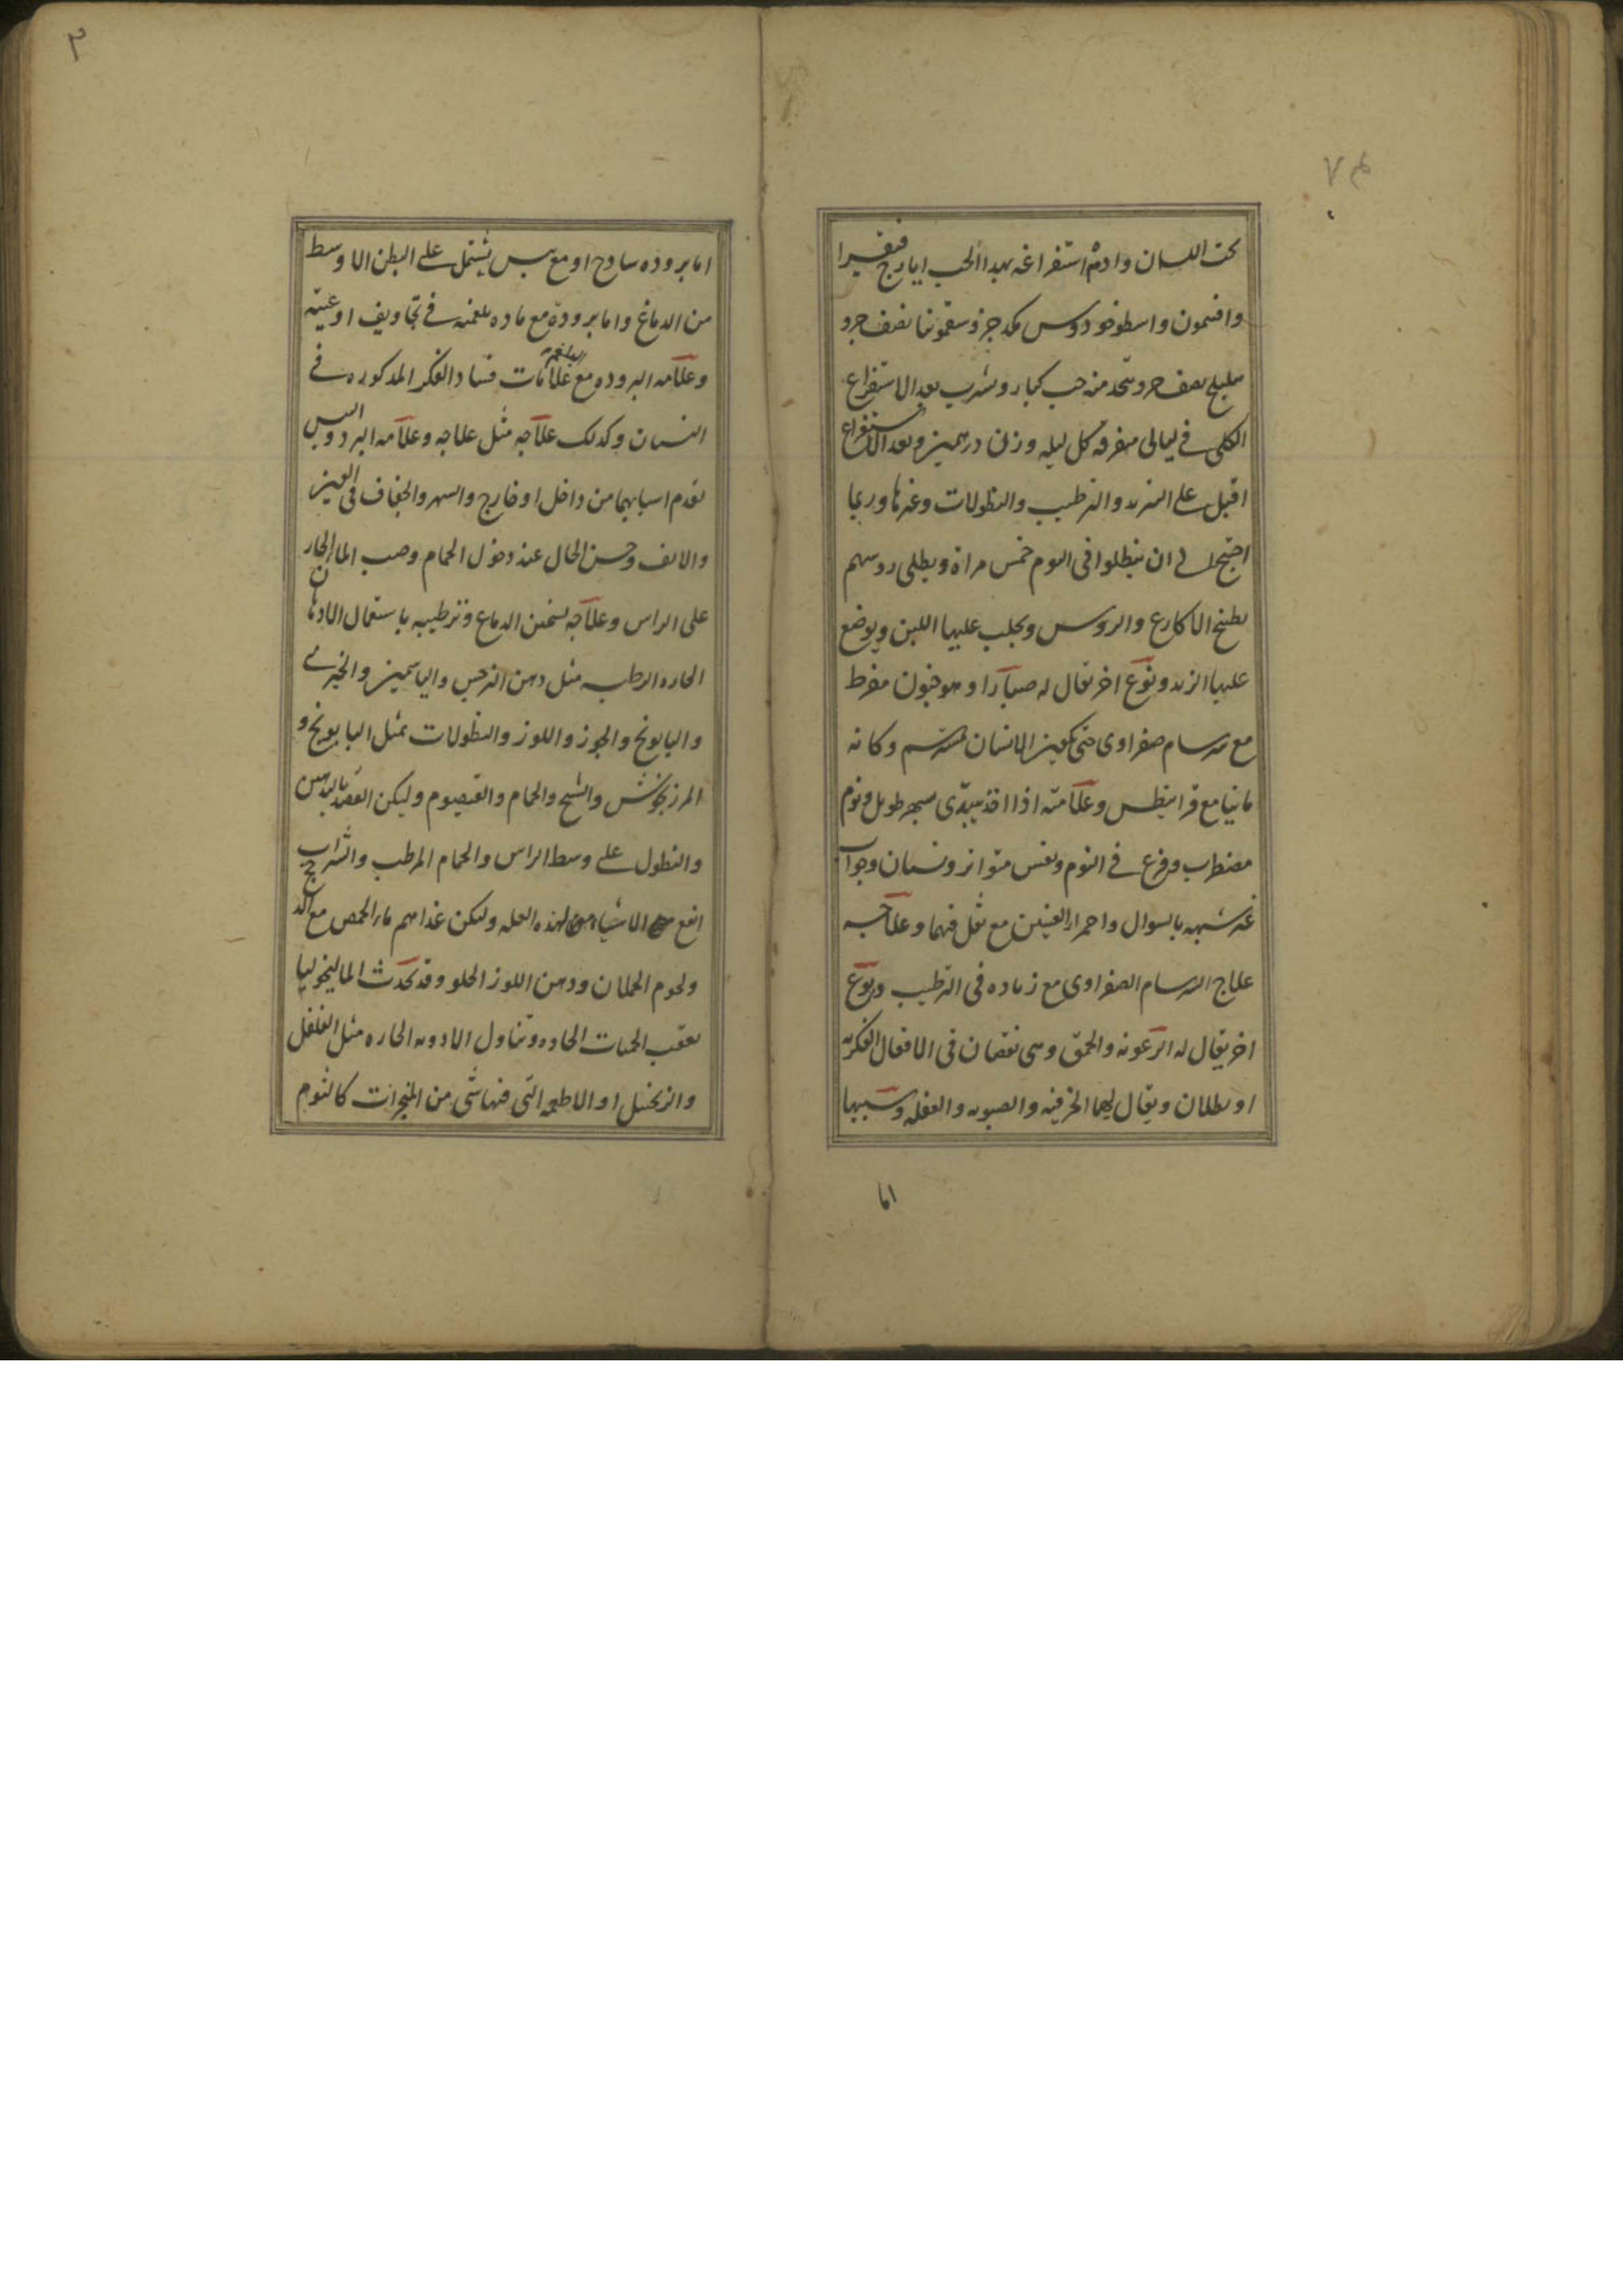 تحت اللسان وادم استفراغه بهذا الحب ايارج فيقرا
وافتيمون واسطوخودوس مكد جزو سقمونيا نصف جزو
هليلج نصف جزو يتخذ منه حب كبار ويشرب بعد الاستفراغ
الكلى فے ليالى متفرقه كل ليله وزن درهمين وبعد الاستفراغ
اقبل على التبريد والترطيب والنطولات وغيرها وربما
احتيج الے ان ينطلوا فى اليوم خمس مراة ويطلى روسهم
بطبيخ الاكارع والروس ويحلب عليها اللبن ويوضع
عليها الزبد ونوع اخر يقال له صبارا وهو جنون مفرط
مع سرسام صفراوى حتى يكون الانسان وكانه
مانيا مع قرانيطس وعلامته اذا اخذ يبتدى سهر طويل ونوم
مضطرب وفزع فے النوم ونفس متواتر ونسيان وجواب
غير شبيه بالسوال واحمرار العينين مع ثقل فيهما وعلاجه
علاج السرسام الصفراوى مع زياده فى الترطيب ونوع
اخر يقال له الرعونه والحمق وهى نقصان فى الافعال الفكريه
او بطلان ويقال لهما الخرفيه والصبويه والغفله وسببها
اما
٣
اما بروده ساذج او مع يبس يشتمل على البطن الاوسط
من الدماغ واما برودة مع ماده بلغميه فے تجاويف اوعيته
وعلامه البروده مع علامات البلغم فساد الفكر المذكوره فے
النسيان وكذلك علاجه مثل علاجه وعلامه البرد واليبس
تقدم اسبابهما من داخل او خارج والسهر والجفاف فى العين
والانف وحسن الحال عند دخول الحمام وصب الما الحار
على الراس وعلاجه تسخين الدماغ وترطيبه باستعمال الادهان
الحاره الرطبه مثل دهن النرجس والياسمين والخيرے
والبابونج والجوز واللوز والنطولات بمثل البابونج و
المرزنجوش والشيح والحمام والقيصوم وليكن القصد بالدهن
والنطول علے وسط الراس والحمام المرطب والشراب
انفع الاشياء لهذه العله وليكن غذاهم ماء الحمص مع
ولحوم الحملان ودهن اللوز الحلو وقد تحدث الماليخوليا
بعقب الحميات الحاده وتناول الادويه الحاره مثل الفلفل
والزنجبيل او الاطعمه التى فيها شى من المبخرات كالثوم